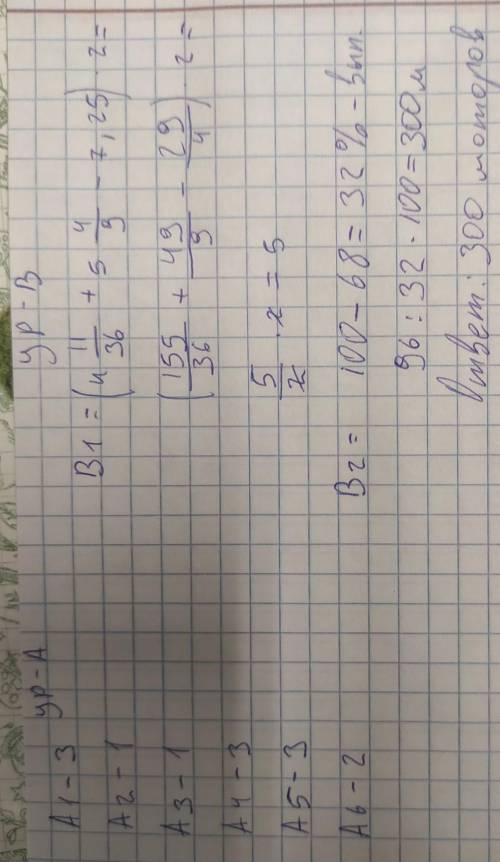 ур-А
А1-3
А2-1
А3-1
А4-3
А5-3
А6-2
ур-В
В1 = (4 11/36 + 5 4/9 - 7,25) · 2 =
(155/36 + 49/9 - 29/4) · 2 =
5/2 · 2 = 5
В2 = 100 - 68 = 32% - вып.
96 : 32 · 100 = 300 м
Ответ: 300 моторов